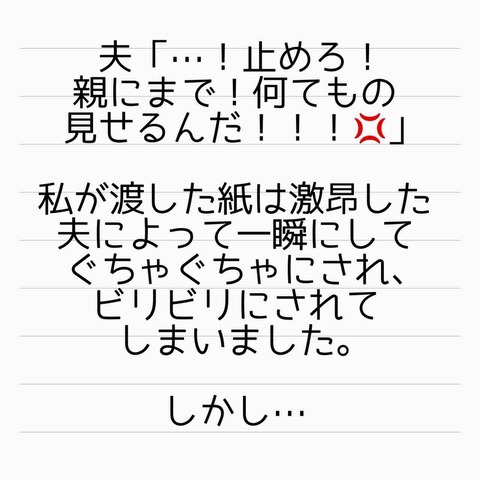 夫「…！止めろ！
親にまで！何てもの
見せるんだ！！！💢」
私が渡した紙は激昂した
夫によって一瞬にして
ぐちゃぐちゃにされ、
ビリビリにされて
しまいました。
しかし…